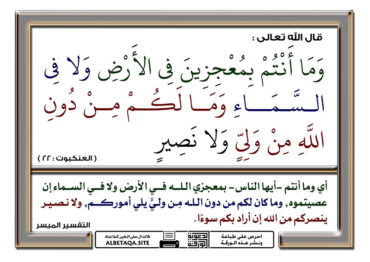 قال الله تعالى :
وَمَا أَنْتُمْ بِمُعْجِزِينَ فِى الأَرْضِ وَلَا فِى
السَّمَاءِ وَمَا لَكُمْ مِنْ دُونِ
اللَّهِ مِنْ وَلِيٍّ وَلَا نَصِيرٍ
( العنكبوت : ٢٢ )
أي وما أنتم -أيها الناس- بمعجزي الله في الأرض ولا في السماء إن
عصيتموه, وما كان لكم من دون الله مِن وليٍّ يلي أموركم, ولا نصير
ينصركم من الله إن أراد بكم سوءًا.
التفسير الميسر
احرص على طباعة
ونشر هذه الورقة
فالدال على الخير كفاعله
ALBETAQA.SITE